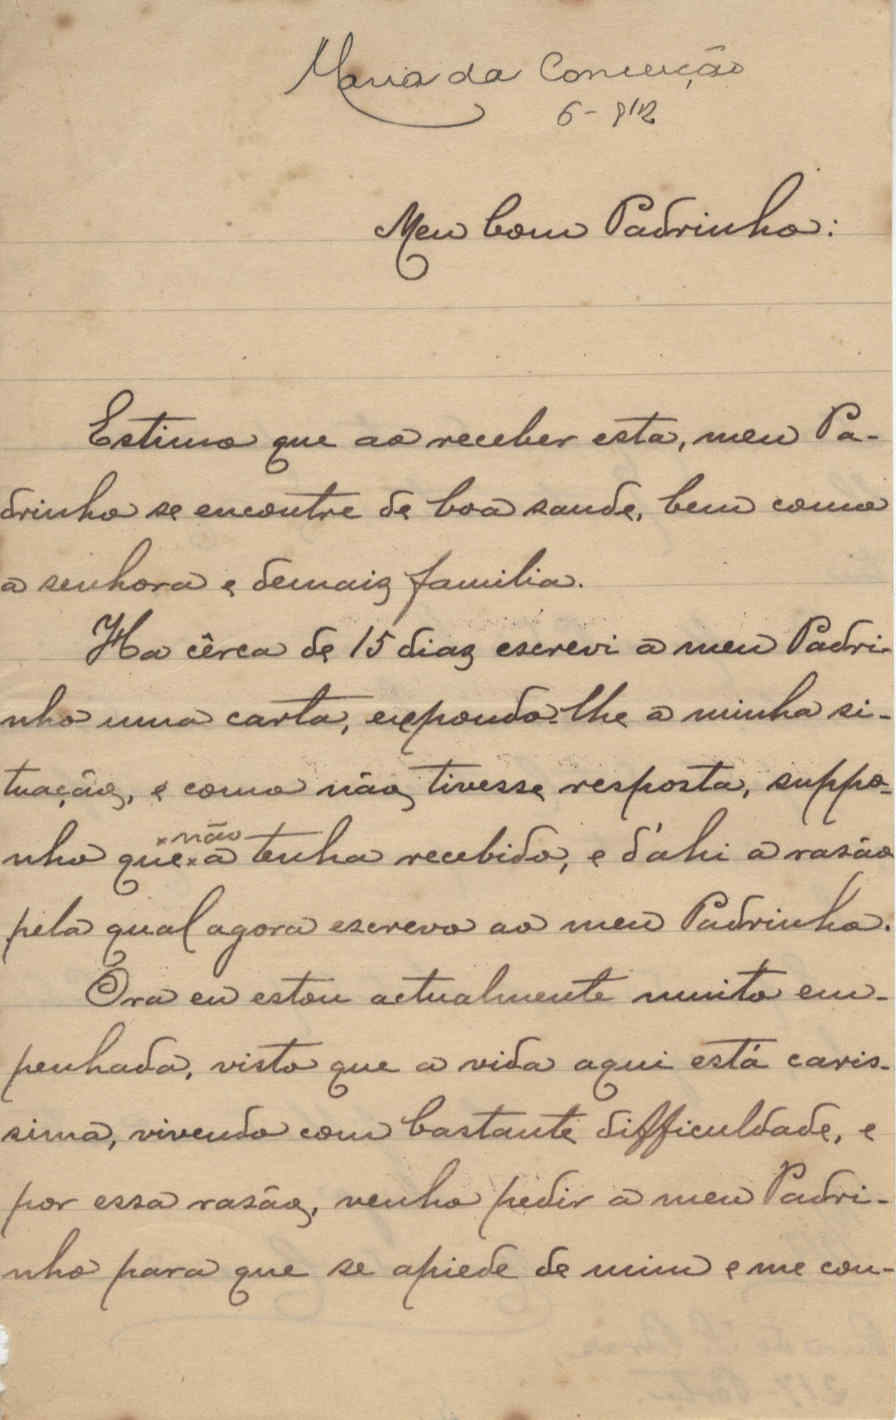 Maria da Conceição
6-912
Meu bom Padrinho:
Estimo que ao receber esta, meu Pa-
drinho se encontre de boa saude, bem como
a senhora e demais familia.
Ha cêrca de 15 dias escrevi a meu Padri-
nho uma carta, expondo-lhe a minha si-
tuação, e como não tivesse resposta, suppo-
não
nho que a tenha recebido, e d'ahi a rasão
pela qual agora escrevo ao meu Padrinho.
Ora eu estou actualmente muito em-
penhada, visto que a vida aqui está caris-
sima, vivendo com bastante difficuldade, e
por essa rasão, venho pedir a meu Padri-
nho para que se apiede de mim e me con-